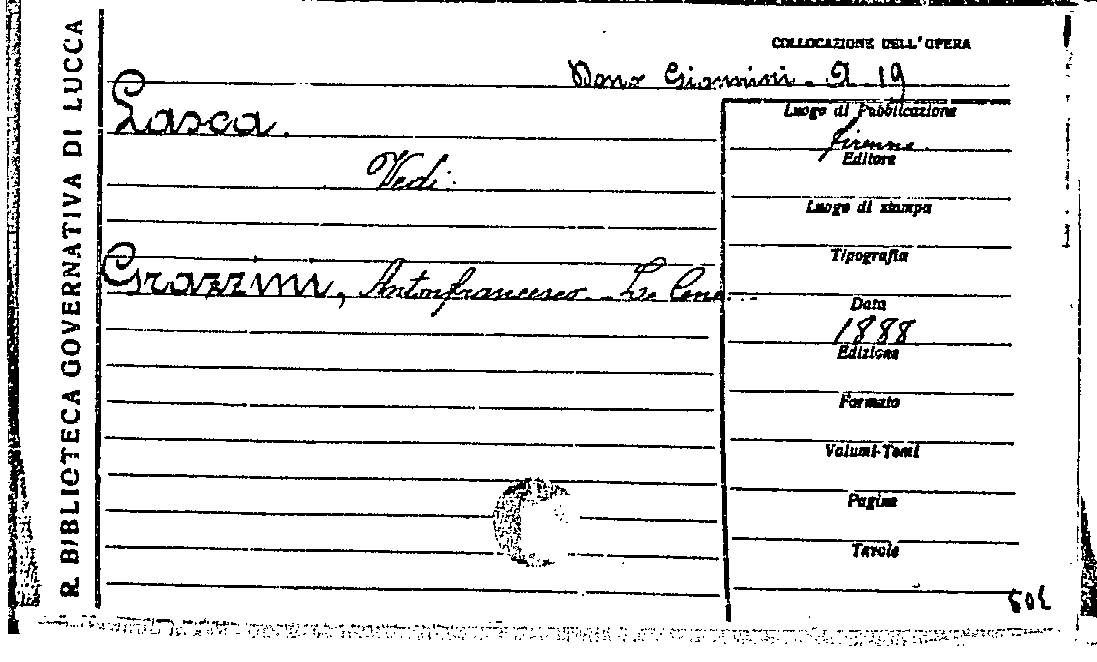 R. BIBLIOTECA GOVERNATIVA DI LUCCA
COLLOCAZIONE DELL'OPERA
Dono Giannini - 2 19
Lasca.
Vedi:
Grazzini, Antonfrancesco - Le Cene
Luogo di Pubblicazione
Firenze
Editore
Luogo di stampa
Tipografia
Data
1888
Edizione
Formato
Volumi-Tomi
Pagine
Tavole